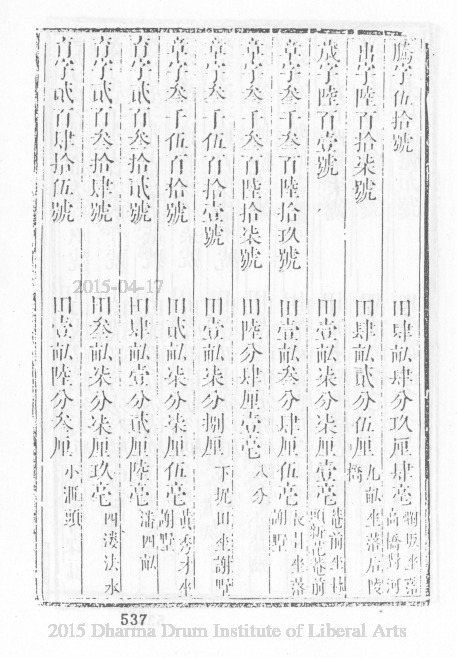 騰字伍拾號 田肆畝肆分玖厘肆毫 坐落高橋對河
出字陸百拾柒號 田肆畝貳分伍厘 九畝坐落后陵橋
歲字陸百壹號 田壹畝柒分柒厘壹毫 菴前坐菴前
章字叁千叁百陸拾玖號 田壹畝叁分肆厘伍毫 坐落謝墅
章字叁千叁百陸拾柒號 田陸分肆厘壹毫 八分
章字叁千伍百拾壹號 田壹畝柒分捌厘 下坂田坐謝墅
章字叁千伍百拾號 田貳畝柒分柒厘伍毫 黃秀才坐謝墅
育字貳百叁拾貳號 田肆畝壹分貳厘陸毫 潘四畝
育字貳百叁拾肆號 田叁畝柒分柒厘玖毫 四湊法水
育字貳百肆拾伍號 田壹畝陸分叁厘 小涵頭
2015-04-17
537
2015 Dharma Drum Institute of Liberal Arts